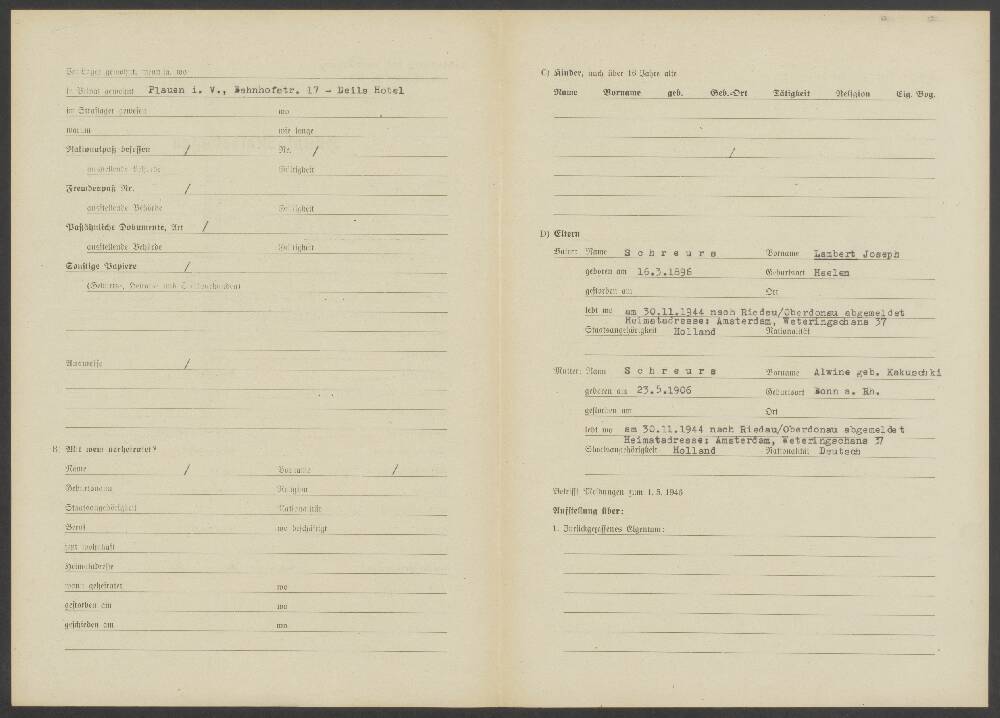 Im Lager gewohnt, wenn ja, wo
in Privat gewohnt Plauen i. V., Bahnhofstr. 17 - Deils Hotel
im Straflager gewesen wo
warum wie lange
Nationalpaß besessen / Nr. /
ausstellende Behörde Gültigkeit
Fremdenpaß Nr. /
ausstellende Behörde Gültigkeit
Paßähnliche Dokumente, Art /
ausstellende Behörde Gültigkeit
Sonstige Papiere /
(Geburts-, Heirats- und
Ausweise /
B) Mit wem verheiratet?
Name / Vorname /
Geburtsname Religion
Staatsangehörigkeit Nationalität
Beruf wo beschäftigt
jetzt wohnhaft
Heimatadresse
wann geheiratet wo
gestorben am wo
geschieden am wo
C) Kinder, auch über 16 Jahre alte
Name Vorname geb. Geb.-Ort Tätigkeit Religion Eig. Bog.
/
D) Eltern
Vater: Name Schreurs Vorname Lambert Joseph
geboren am 16.3.1896 Geburtsort Heelen
gestorben am Ort
lebt wo am 30.11.1944 nach Riedau/Oberdonau abgemeldet
Heimatadresse: Amsterdam, Weteringschans 37
Staatsangehörigkeit Holland Nationalität
Mutter: Name Schreurs Vorname Alwine geb. Kakuschki
geboren am 23.5.1906 Geburtsort Bonn a. Rh.
gestorben am Ort
lebt wo am 30.11.1944 nach Riedau/Oberdonau abgemeldet
Heimatadresse: Amsterdam, Weteringschans 37
Staatsangehörigkeit Holland Nationalität Deutsch
Betrifft Meldungen zum 1. 5. 1946
Aufstellung über:
1. Zurückgelassenes Eigentum: